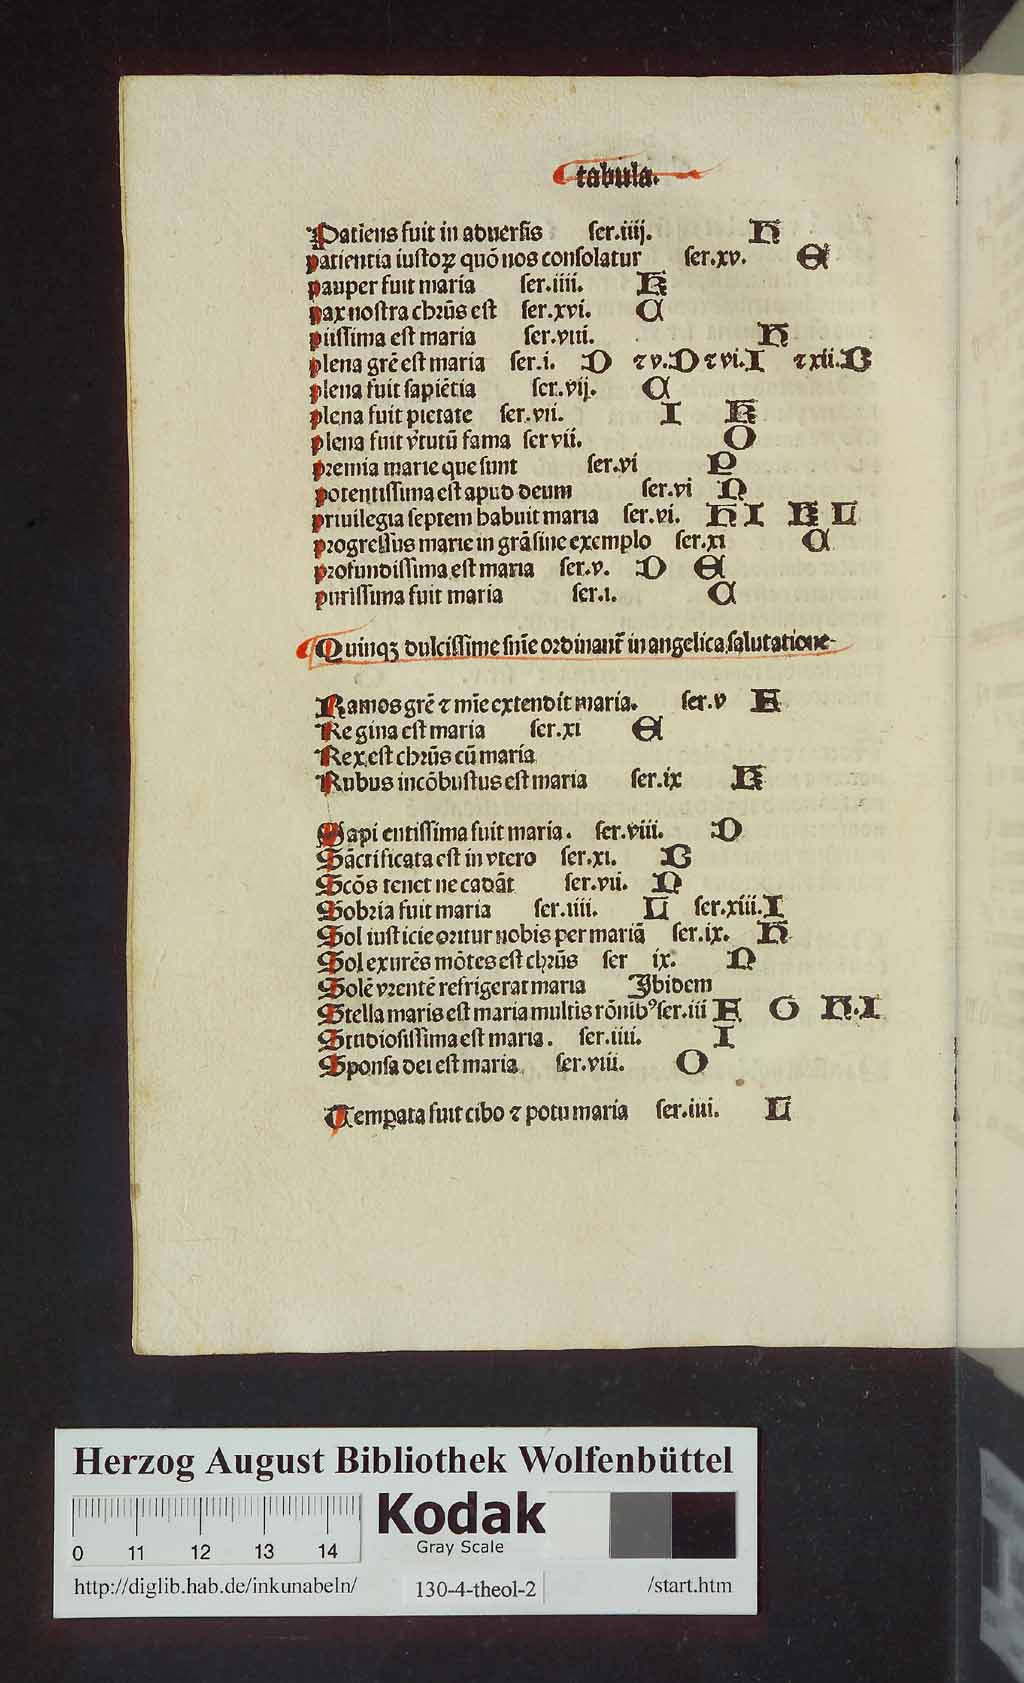 tabula.
Patiens fuit in aduersis ser.iiij. H
patientia iustoꝝ quō nos consolatur ser.xv. E
pauper fuit maria ser.iiii. K
pax nostra chrūs est ser.xvi. C
piissima est maria ser.viii. H
plena grē est maria ser.i. D ⁊ v. D ⁊ vi. I ⁊ xii. B
plena fuit sapiētia ser.vij. C
plena fuit pietate ser.vii. I K
plena fuit v̓tutū fama ser vii. O
premia marie que sunt ser.vi P
potentissima est apud deum ser.vi N
priuilegia septem habuit maria ser.vi. H I K L
progressus marie in grā sine exemplo ser.xi C
profundissima est maria ser.v. D E
purissima fuit maria ser.i. C
Quinqꝫ dulcissime sn̄ie ordinant̄ in angelica salutatione
Ramos grē ⁊ mīe extendit maria. ser.v F
Regina est maria ser.xi E
Rex est chrūs cū maria
Rubus incōbustus est maria ser.ix K
Sapi entissima fuit maria. ser.viii. D
Sāctificata est in vtero ser.xi. B
Scōs tenet ne cadāt ser.vii. N
Sobria fuit maria ser.iiii. L ser.xiii. I
Sol iusticie oritur nobis per mariā ser.ix. H
Sol exurēs mōtes est chrūs ser ix. N
Solē vrentē refrigerat maria Ibidem
Stella maris est maria multis rōnibꝰ ser.iii F G H.I
Studiosissima est maria. ser.iiii. I
Sponsa dei est maria. ser.viii. O
Temꝑata fuit cibo ⁊ potu maria ser.iiii. L
Herzog August Bibliothek Wolfenbüttel
Kodak
Gray Scale
0 11 12 13 14
http://diglib.hab.de/inkunabeln/ 130-4-theol-2 /start.htm